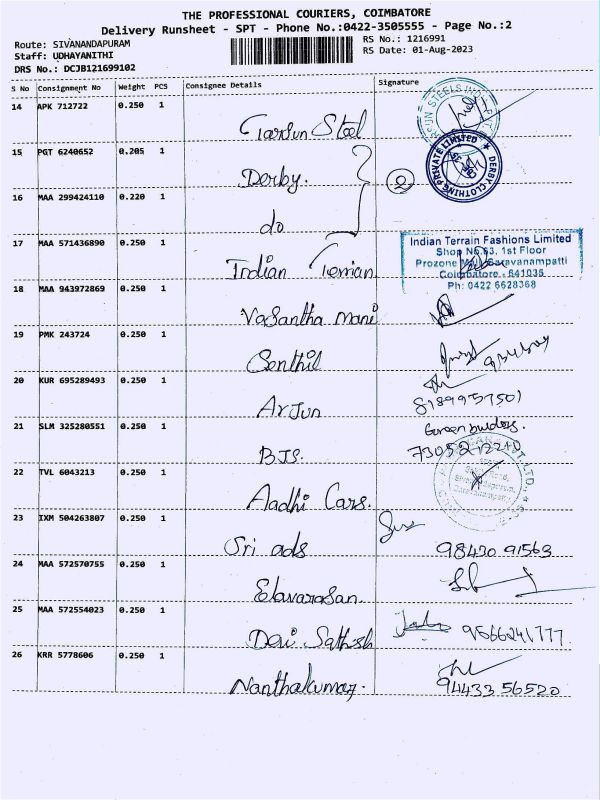 THE PROFESSIONAL COURIERS, COIMBATORE
Delivery Runsheet - SPT - Phone No.:0422-3505555 - Page No.:2
Route: SIVANANDAPURAM RS No.: 1216991
Staff: UDHAYANITHI RS Date: 01-Aug-2023
DRS No.: DCJB121699102
S No Consignment No Weight PCS Consignee Details Signature
14 APK 712722 0.250 1
Steel
15 PGT 6240652 0.205 1
Derby.
DERBY CLOTHING PRIVATE LIMITED
16 MAA 299424110 0.220 1
do
17 MAA 571436890 0.250 1
Indian Terrian
Indian Terrain Fashions Limited
Shop No.63, 1st Floor
Prozone Mall Saravanampatti
Coimbatore - 641035
Ph: 0422 6628368
18 MAA 943972869 0.250 1
Vasantha mani
19 PMK 243724 0.250 1
Senthil
20 KUR 695289493 0.250 1
Arjun
21 SLM 325280551 0.250 1
BJS.
22 TVL 6043213 0.250 1
Aadhi Cars.
23 IXM 504263807 0.250 1
Sri ads 98430 91563
24 MAA 572570755 0.250 1
Elavarasan.
25 MAA 572554023 0.250 1
Devi Sathish 9566241777.
26 KRR 5778606 0.250 1
Nanthakumar. 94433 56520